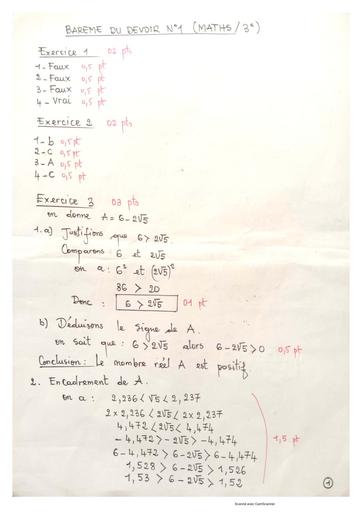 BAREME DU DEVOIR N°1 (MATHS/3°)
Exercice 1 02 pts
1-Faux 0,5 pt
2-Faux 0,5 pt
3-Faux 0,5 pt
4-Vrai 0,5 pt
Exercice 2 02 pts
1-b 0,5 pt
2-C 0,5 pt
3-A 0,5 pt
4-C 0,5 pt
Exercice 3 03 pts
on donne A = 6-2√5
1.a) Justifions que 6 > 2√5
Comparons 6 et 2√5
on a : 6² et (2√5)²
36 > 20
Donc : 6 > 2√5 01 pt
b) Déduisons le signe de A.
on sait que : 6 > 2√5 alors 6-2√5 > 0 0,5 pt
Conclusion : Le nombre réel A est positif
2. Encadrement de A.
on a : 2,236 < √5 < 2,237
2 x 2,236 < 2√5 < 2 x 2,237
4,472 < 2√5 < 4,474
-4,472 > -2√5 > -4,474
6-4,472 > 6-2√5 > 6-4,474
1,528 > 6-2√5 > 1,526 1,5 pt
1,53 > 6-2√5 > 1,52
1
Scanned avec CamScanner